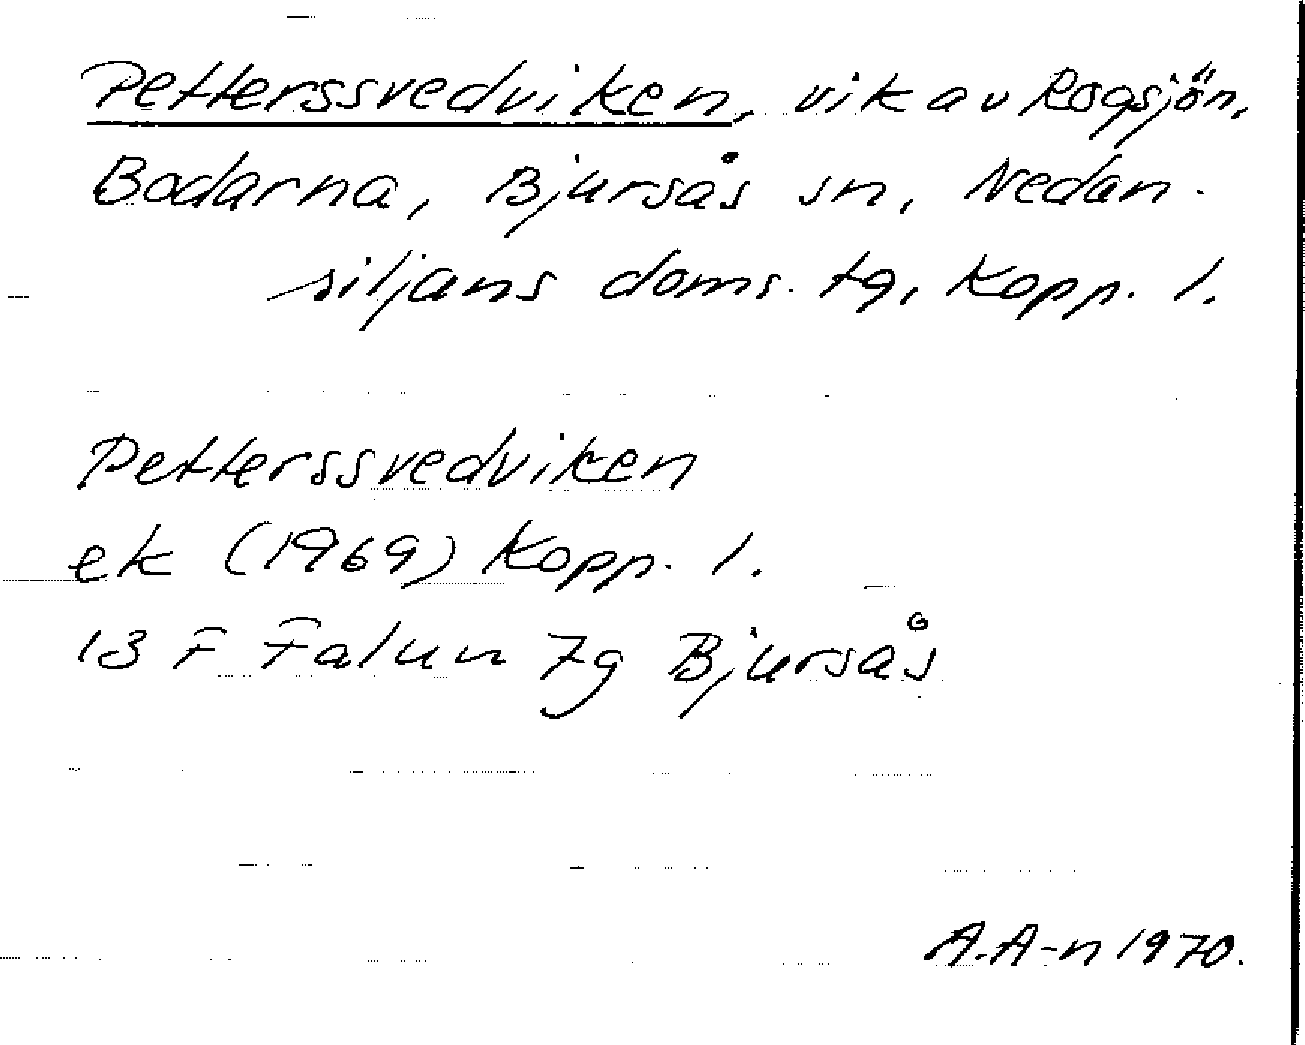 Petterssvedviken, vik av Rogsjön,
Bodarna, Bjursås sn, Nedan-
siljans doms. tg, Kopp. l.
Petterssvedviken
ek (1969) Kopp. l.
13 F Falun 7g Bjursås
A.A-n 1970.